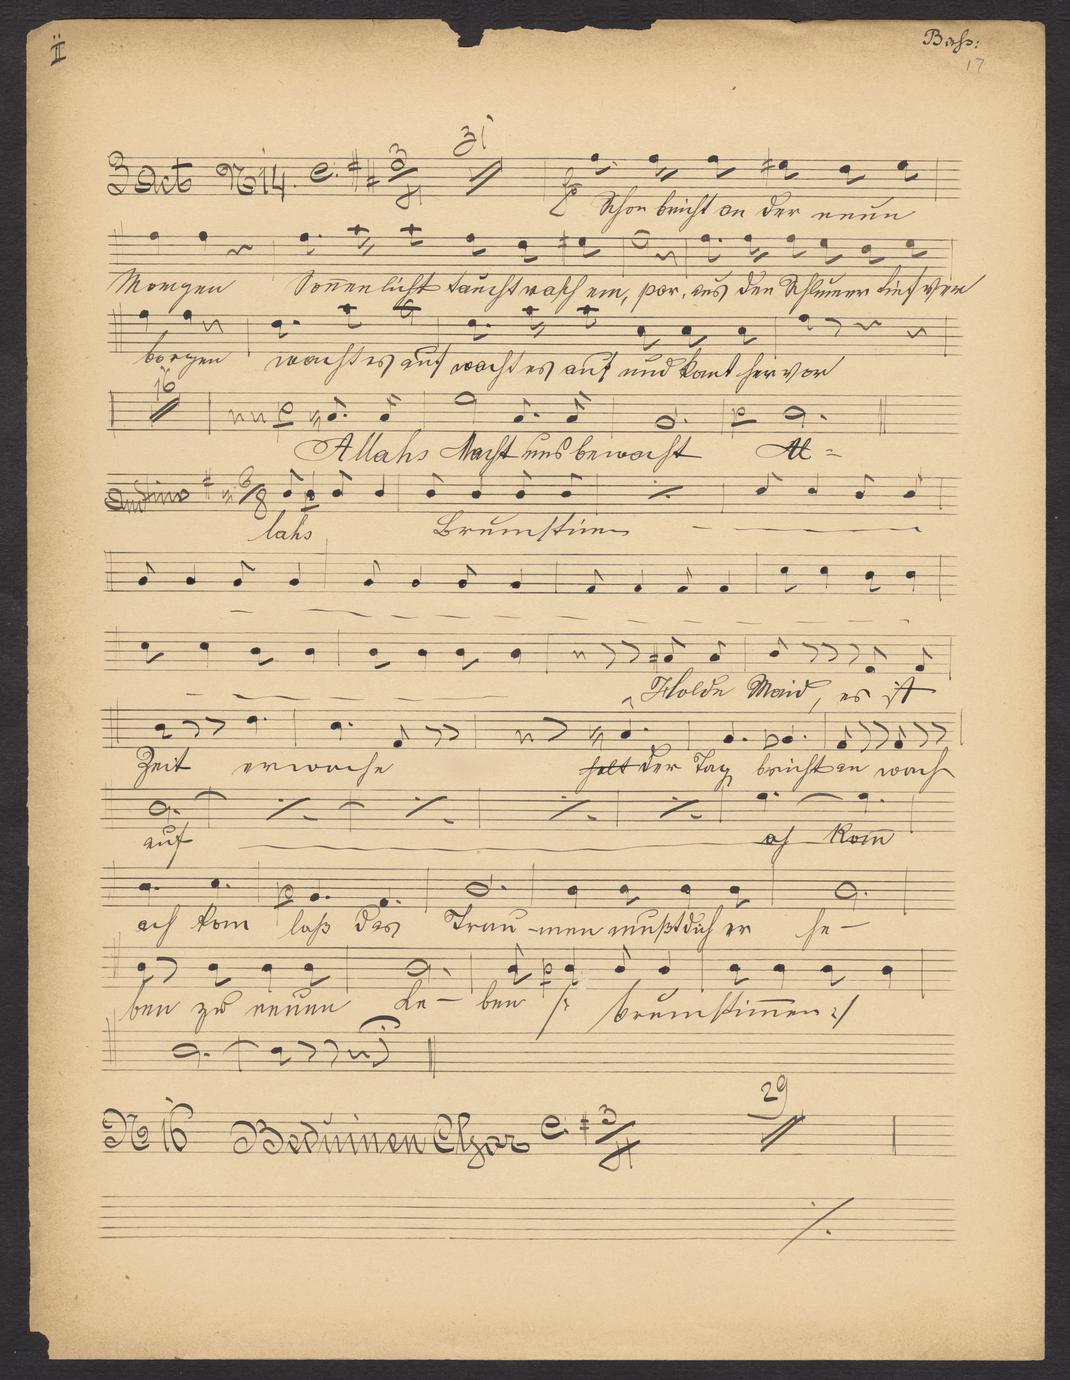 II
Bass:
17
3 Act No 14. 3/4 31
Schon bricht an der neue
Morgen Sonnenlicht taucht rasch em, por, aus den Schlummer tief ver
borgen wacht es auf wacht es auf und kømt hervor
16
Allahs Macht uns bewacht Al =
6/8
lahs Brumstim
Holde Maid, es ist
Zeit erwache der Tag bricht an wach
auf ach kom̄
ach kom laß das Träu - men mußt dich er he -
ben zu neuen Le - ben brumstim̄en
No 16 Beduinen Chor 3/4 29